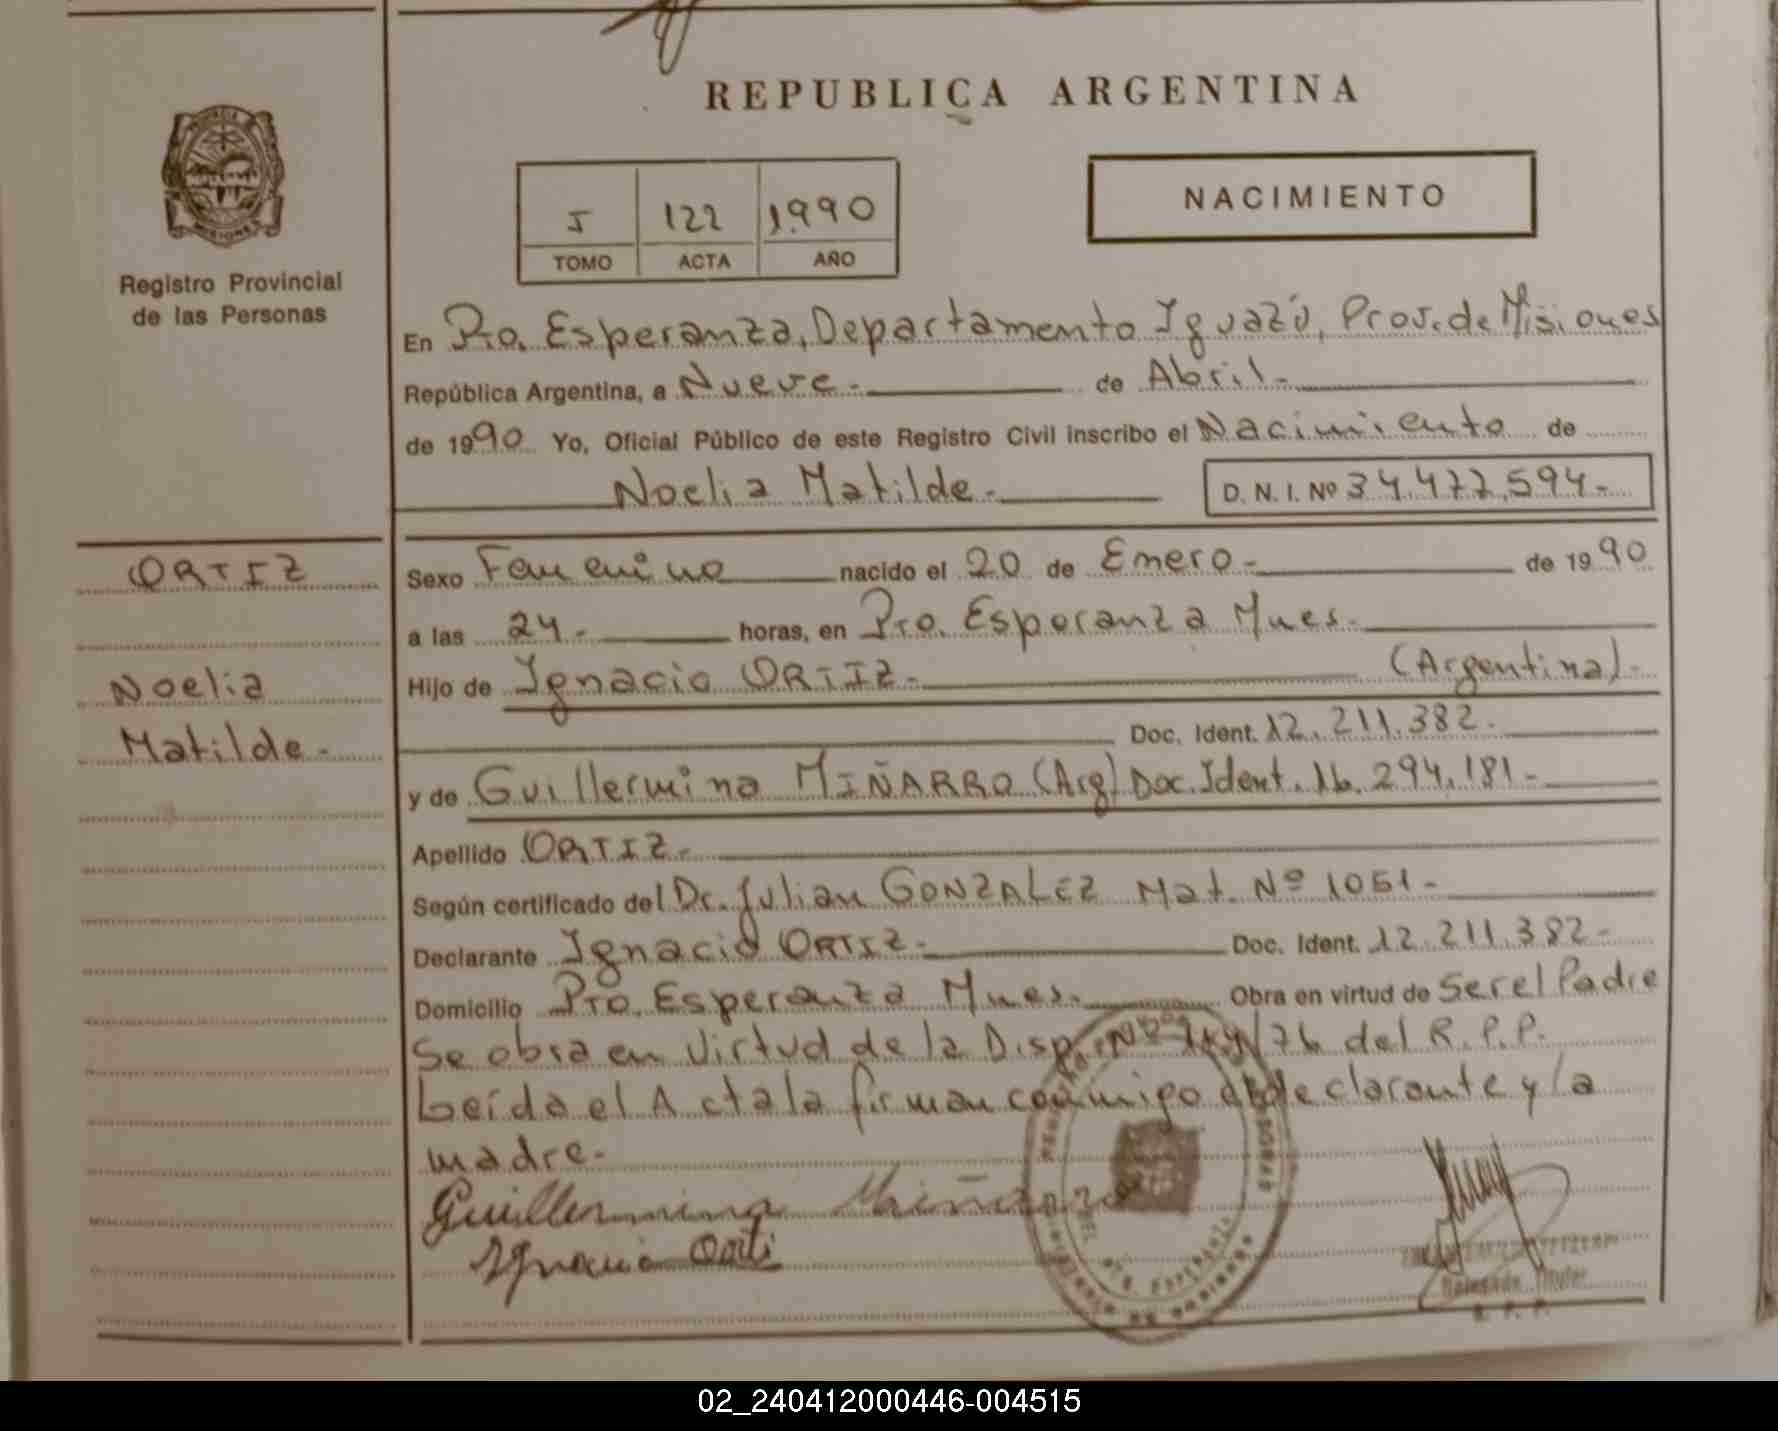 REPUBLICA ARGENTINA
NACIMIENTO
5 122 1.990
TOMO ACTA AÑO
Registro Provincial
de las Personas
En Pto. Esperanza, Departamento Iguazú, Prov. de Misiones
República Argentina, a Nueve.- de Abril.-
de 1990 Yo, Oficial Público de este Registro Civil inscribo el Nacimiento de
Noelia Matilde.- D. N. I. Nº 34.477.594.-
ORTIZ
Noelia
Matilde.-
Sexo Femenino nacido el 20 de Enero.- de 1990
a las 24.- horas, en Pto. Esperanza Mnes.-
Hijo de Ignacio ORTIZ.- (Argentina).-
Doc. Ident. 12.211.382.-
y de Guillermina MIÑARRO (Arg) Doc. Ident. 16.294.181.-
Apellido ORTIZ.-
Según certificado del Dr. Julian GONZALEZ Mat. Nº 1051.-
Declarante Ignacio ORTIZ.- Doc. Ident. 12.211.382.-
Domicilio Pto. Esperanza Mnes.- Obra en virtud de Ser el Padre
Se obra en Virtud de la Disp. Nº /76 del R.P.P.
Leída el Acta la firman conmigo el declarante y la
madre.-
Guillermina Miñarro
Ignacio Orti
Delegado Titular
R. P. P.
02_240412000446-004515